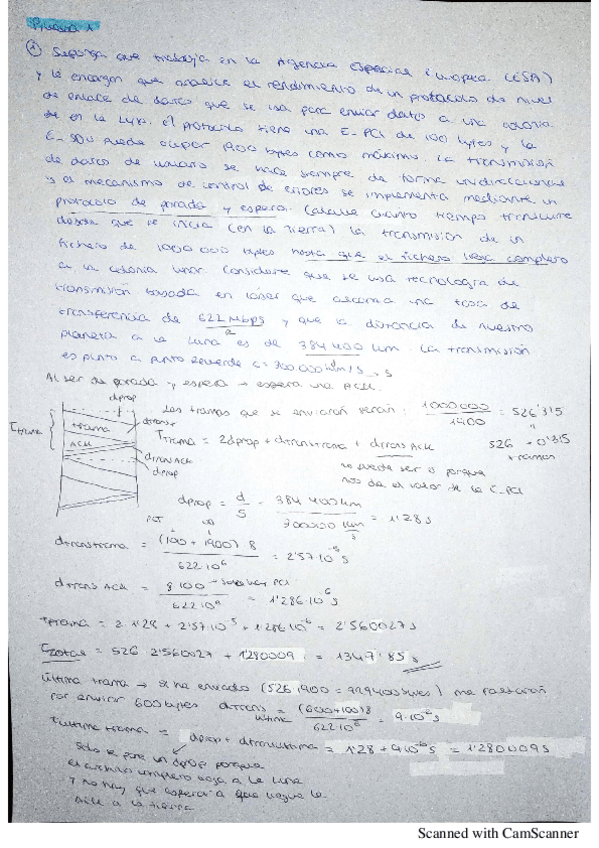 Prueba 1
① Suponga que trabaja en la Agencia Espacial Europea (ESA)
y le encargan que analice el rendimiento de un protocolo de nivel
de enlace de datos que se usa para enviar datos a una colonia
en la Luna. El protocolo tiene una E-PCI de 100 bytes y la
E-SDU puede ocupar 1900 bytes como máximo. La transmisión
de datos de usuario se hace siempre de forma unidireccional
y el mecanismo de control de errores se implementa mediante un
protocolo de parada y espera. Calcule cuanto tiempo transcurre
desde que se inicia (en la Tierra) la transmisión de un
fichero de 1000 000 bytes hasta que el fichero llega completo
a la colonia lunar. Considere que se usa tecnología de
transmisión basada en láser que alcanza una tasa de
transferencia de 622 Mbps y que la distancia de nuestro
planeta a la Luna es de 384 400 km. La transmisión
es punto a punto. Recuerde c = 300 000 km/s
Al ser de parada y espera → espera una ACK.
dprop
Las tramas que se enviarán serán: 1000000 / 1900 = 526'315
Ttrama
trama
dtrans
ACK
dtrans ACK
dprop
Ttrama = 2dprop + dtranstrama + dtrans ACK
526 + 0'315
tramas
no puede ser 0 porque
nos da el valor de la E-PCI
dprop = d / S = 384 400 km / 300000 km/s = 1'28 s
PCI
dtranstrama = (100 + 1900) 8 / 622·10⁶ = 2'57·10⁻⁵ s
dtrans ACK = 8·100 / 622·10⁶ = 1'286·10⁻⁶ s
Ttrama = 2·1'28 + 2'57·10⁻⁵ + 1'286·10⁻⁶ = 2'560027 s
Ttotal = 526·2'560027 + 1'280009 = 1347'85 s
Última trama → si he enviado (526·1900 = 999400 bytes) me faltarán
por enviar 600 bytes dtrans última = (600+100)8 / 622·10⁶ = 9·10⁻⁶ s
Túltima trama = dprop + dtransultima = 1'28 + 9·10⁻⁶ s = 1'280009 s
Solo se pone un dprop porque
el archivo completo llega a la Luna
y no hay que esperar a que llegue la
ACK a la tierra
Scanned with CamScanner